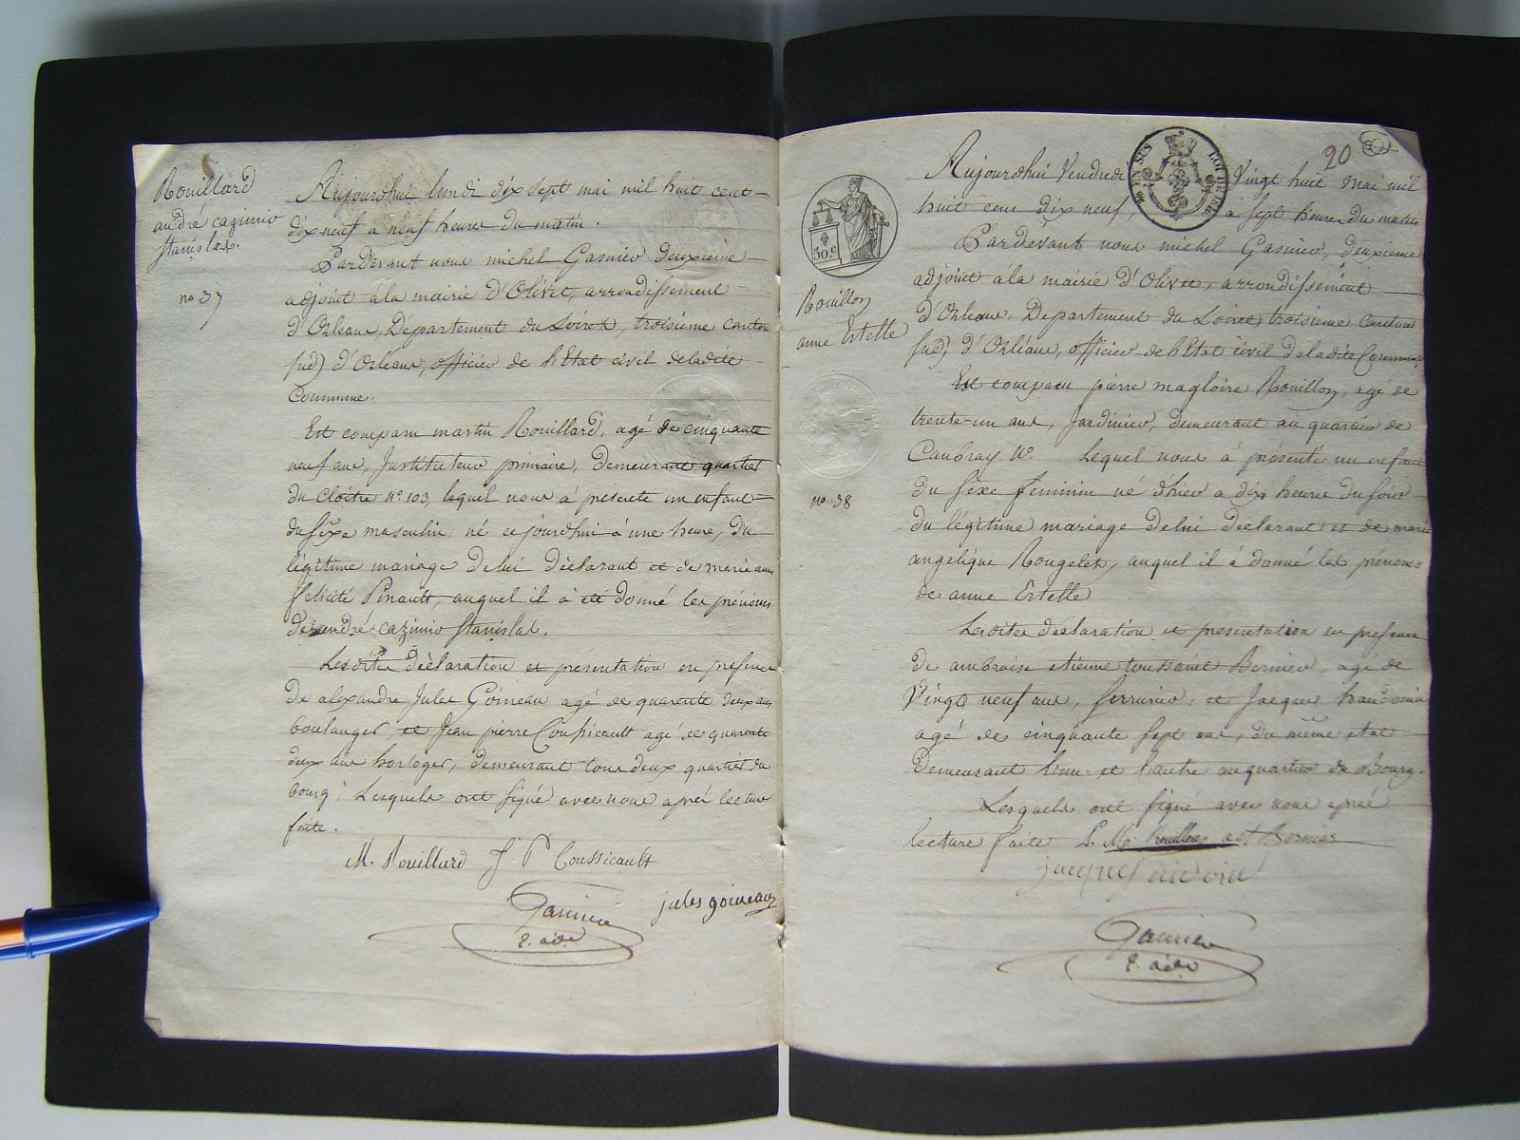 Rouillard
andré cazimir
stanislas.
no 37
Aujourdhui lundi dix sept mai mil huit cent
dix neuf a neuf heure du matin.
Pardevant nous michel Gasnier deuxieme
adjoint à la mairie d'Olivet, arrondissement
d'Orleans, Département du Loiret, troisieme canton
sud) d'Orleans, officier de l'Etat civil deladite
Commune.
Est comparu martin Rouillard, agé de cinquante
neuf ans, Justituteur primaire, demeurant quartier
du Cloitre no 103, lequel nous à presenté un enfant
du sexe masculin né ce jourdhui à une heure, du
légitime mariage de lui déclarant et de marie anne
félicité Pinault, auquel il à été donné les prénoms
de andré cazimir stanislas.
Lesdites déclaration et présentation en présence
De alexandre Jules Goineau agé de quarante deux ans
boulanger, et Jean pierre Coussicault agé de quarante
deux ans horloger, demeurant tous deux quartier du
bourg; Lesquels ont signé avec nous après lecture
faite.
M. Rouillard J. P Coussicault
jules goineau
Gasnier
2. adt.
20
Aujourdhui Vendredi Vingt huit mai mil
huit cent dix neuf, à sept heures du matin
Pardevant nous michel Gasnier, deuxieme
adjoint à la mairie d'Olivet, arrondissement
d'Orleans. Département du Loiret, troisieme canton
sud) d'Orléans, officier de l'Etat civil deladite Commune
50 c
Rouillon
anne Estelle
no 38
Est comparu pierre magloire Rouillon, agé de
trente-un ans, Jardinier, demeurant au quartier de
Caubray No. Lequel nous à présenté un enfant
du sexe féminin né d'hier à dix heures du soir
du légitime mariage de lui déclarant et de marie
angélique Rougelet, auquel il à donné les prénoms
de anne Estelle
Lesdites déclaration et présentation en présence
de ambroise etienne toussaint Bernier, agé de
Vingt neuf ans, serrurier, et Jacques
agé de cinquante sept ans, du même etat
Demeurant l'un et l'autre au quartier du Bourg.
Lesquels ont signé avec nous après
lecture faite P. M. Rouillon aet Bernier
Gasnier
2. adt.